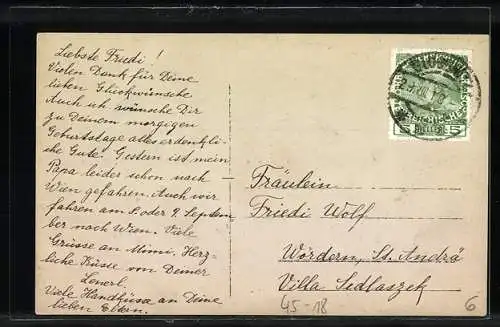 Liebste Friedi!
Vielen Dank für Deine
lieben Glückwünsche
Auch ich wünsche Dir
zu Deinem morgigen
Geburtstage alles erdenkli-
che Gute. Gestern ist mein
Papa leider schon nach
Wien gefahren. Auch wir
fahren am 8. oder 9. Septem
ber nach Wien. Viele
Grüsse an Mimi. Herz-
liche Küsse von Deiner
Lenerl.
Viele Handküsse an Deine
lieben Eltern.
5 HELLER 5
Fräulein
Friedi Wolf
Wördern, St. Andrä
Villa Sedlaszek
45-18
6